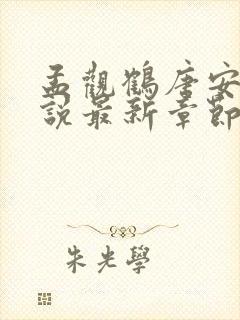 孟觀鶴唐安
說最新章節
朱光學